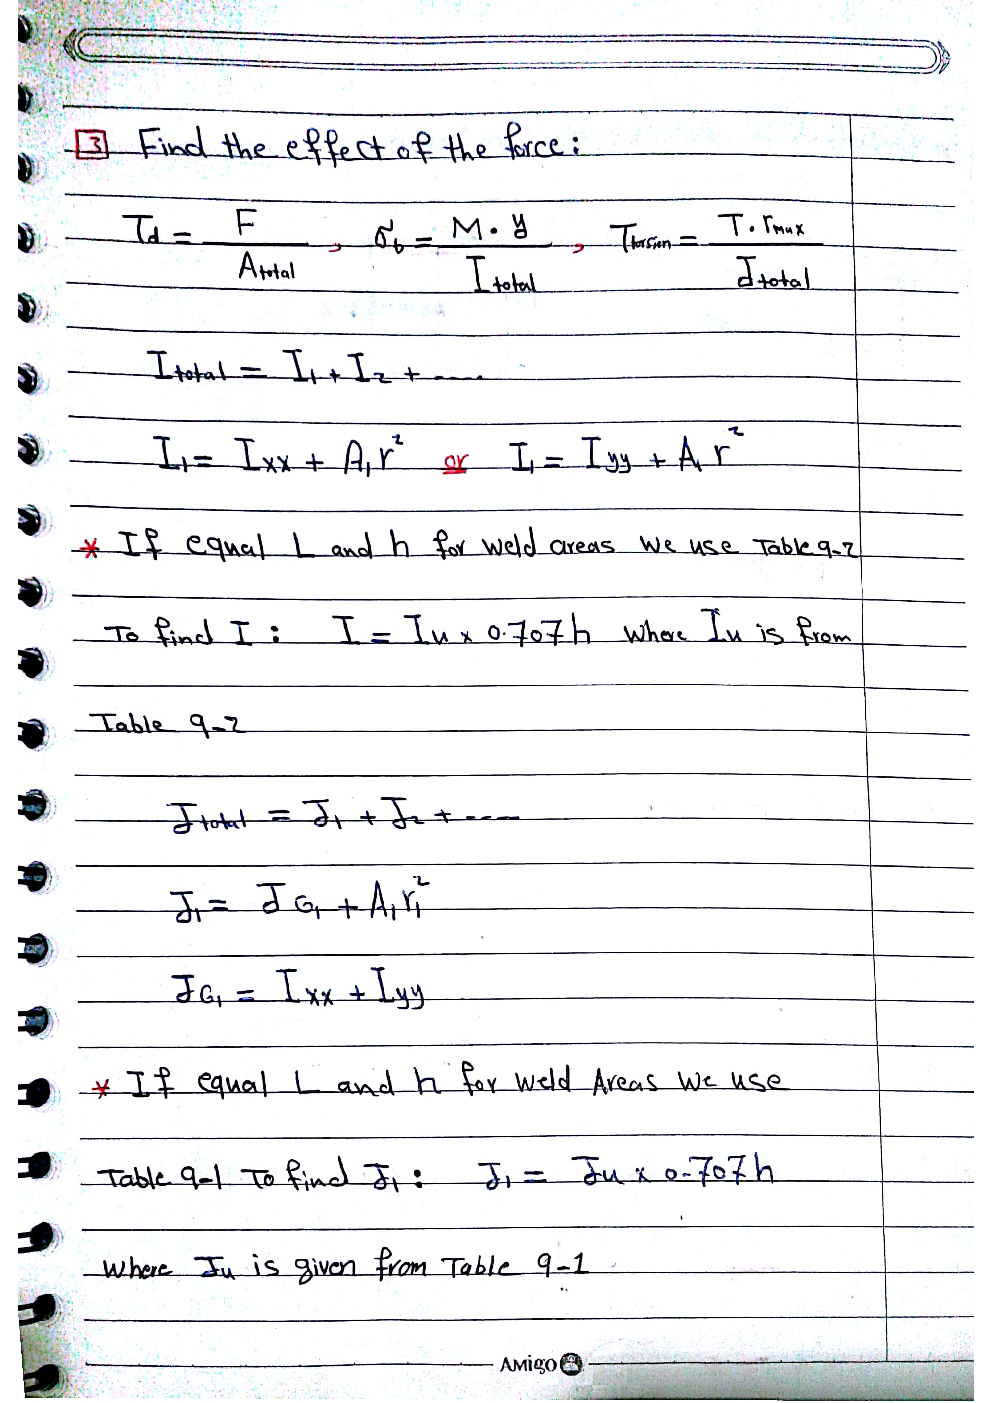 3 Find the effect of the force:
Td = F / Atotal , σb = M . y / Itotal , Ttorsion = T . rmax / Jtotal
Itotal = I1 + I2 + ....
I1 = Ixx + A1r² or I1 = Iyy + A1 r²
* If equal L and h for weld areas we use Table 9-2
To find I : I = Iu x 0.707h where Iu is from
Table 9-2
Jtotal = J1 + J2 + ----
J1 = JG1 + A1r1²
JG1 = Ixx + Iyy
* If equal L and h for weld Areas we use
Table 9-1 To find J1 : J1 = Ju x 0.707h
where Ju is given from Table 9-1
AMIGO